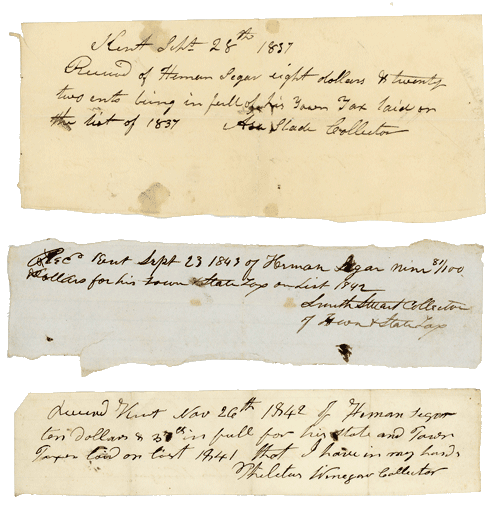 Kent Sept. 28th 1837
Received of Heman Segar eight dollars & twenty
two cnts being in full of his Town Tax laid on
the list of 1837 Asa Slade Collector
Recd Kent Sept 23 1843 of Herman Segar nine 81/100
Dollars for his Town & State Tax on List 1842
Smith Stuart Collector
of Town & State Tax
Received Kent Nov 26th 1842 of Heman Segar
ten dollars & in full for his state and Town
Taxes laid on List 1841 that I have in my hands
Philetus Winegar Collector